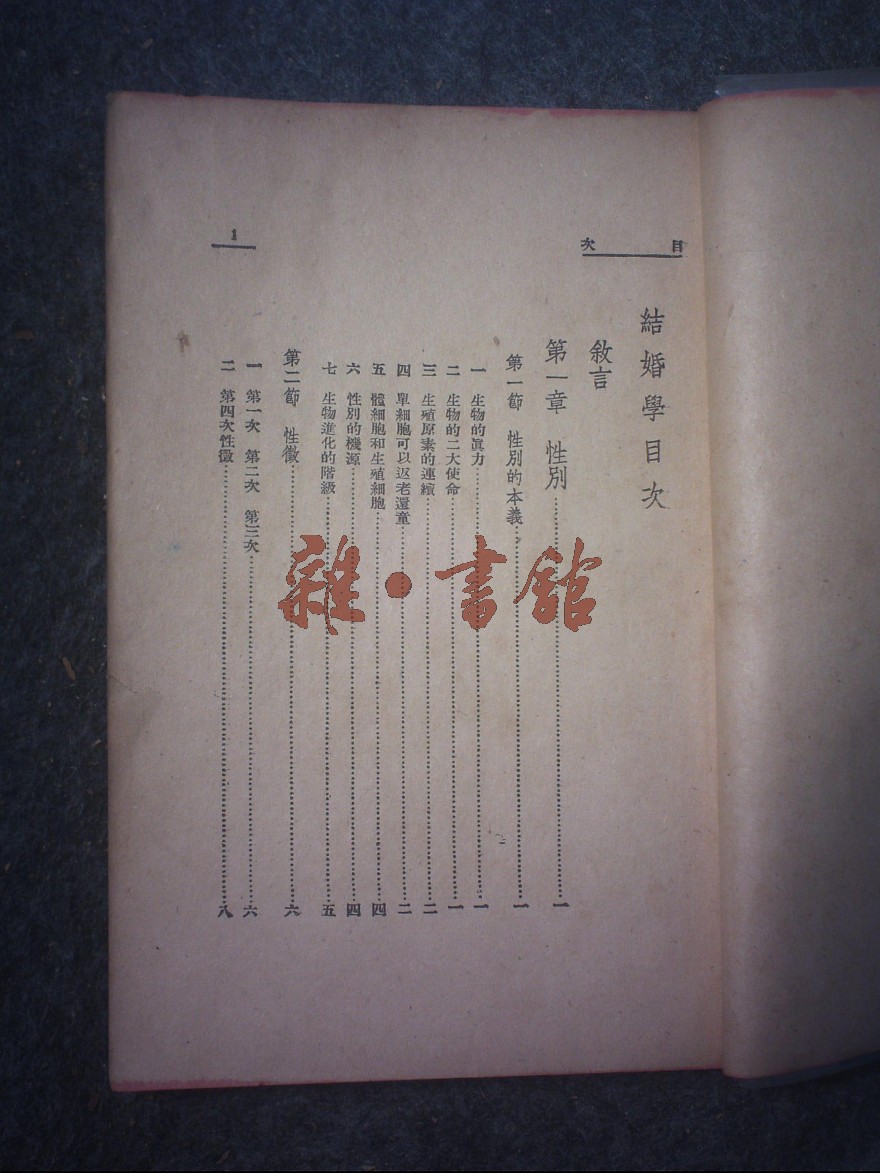 目次
結婚學目次
敘言
第一章 性別……一
第一節 性別的本義……一
一 生物的眞力……一
二 生物的二大使命……一
三 生殖原素的連續……二
四 單細胞可以返老還童……二
五 體細胞和生殖細胞……四
六 性別的機源……四
七 生物進化的階級……五
第二節 性徵……六
一 第一次 第二次 第三次……六
二 第四次性徵……八
1
雜·書館